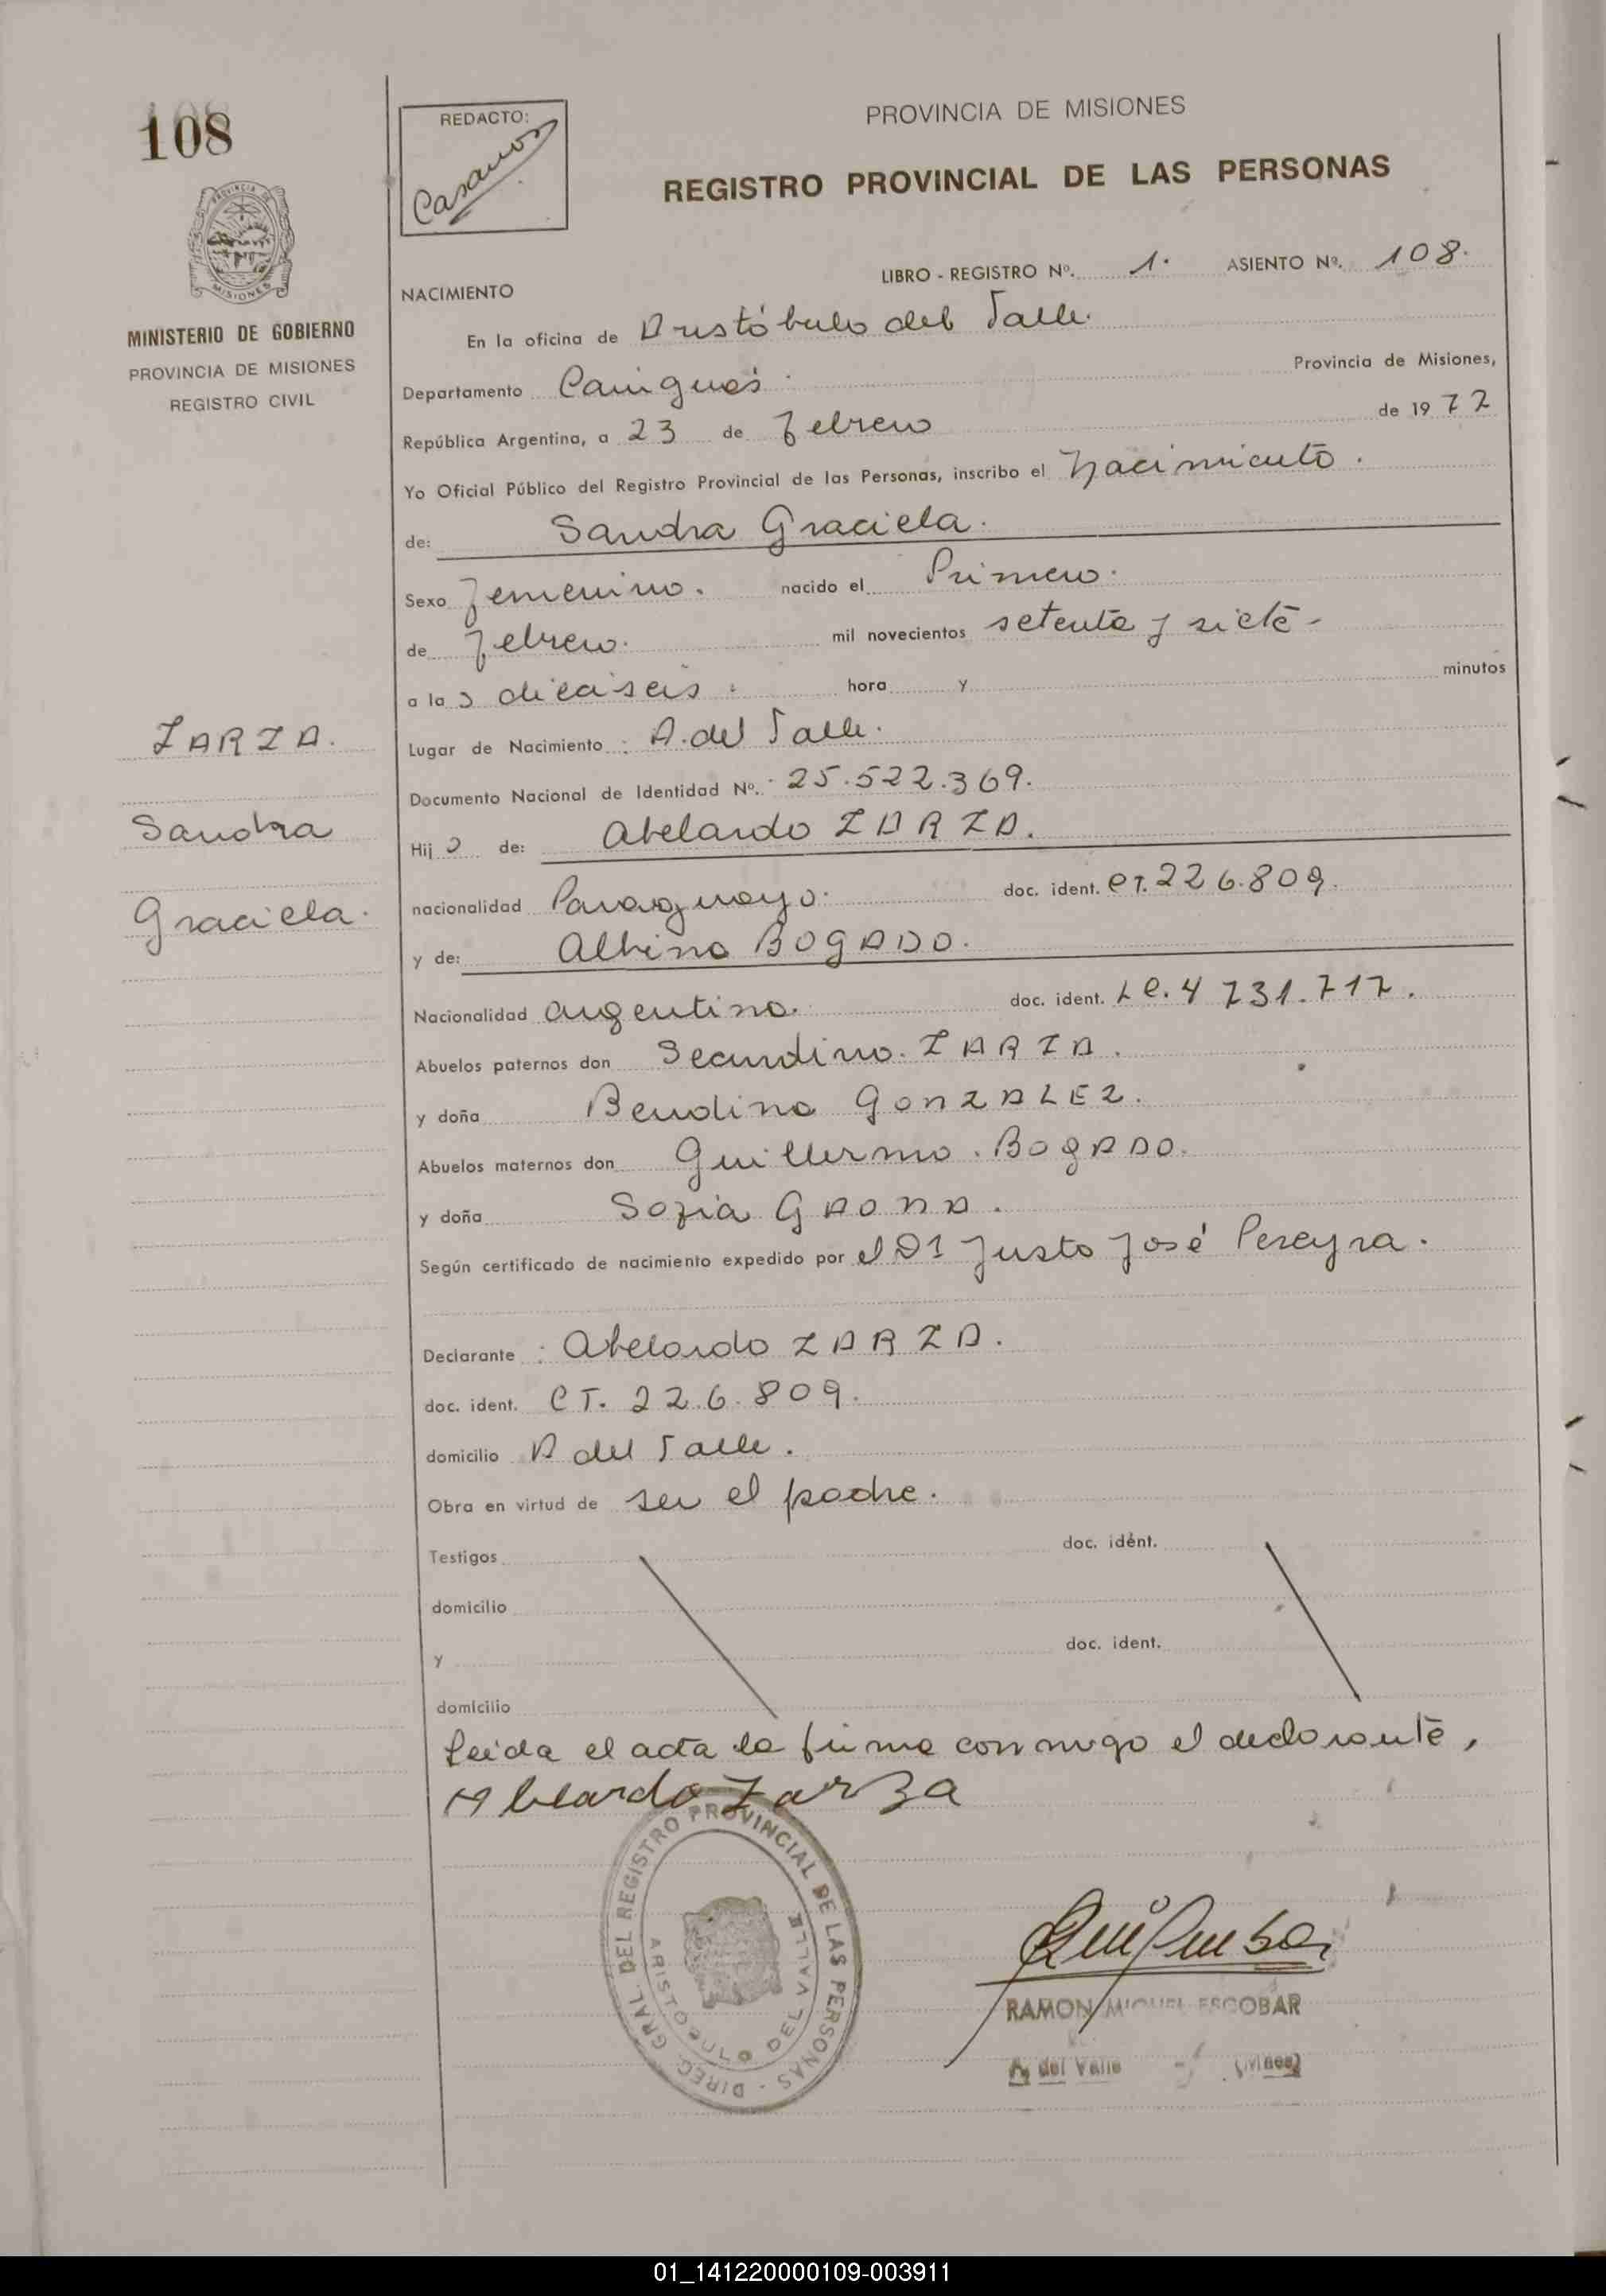 108
REDACTO:
Casanova
PROVINCIA DE MISIONES
REGISTRO PROVINCIAL DE LAS PERSONAS
PROVINCIA DE
MISIONES
MINISTERIO DE GOBIERNO
PROVINCIA DE MISIONES
REGISTRO CIVIL
LIBRO - REGISTRO Nº. 1. ASIENTO Nº. 108.
NACIMIENTO
En la oficina de Aristóbulo del Valle.
Departamento Cainguás. Provincia de Misiones,
República Argentina, a 23 de Febrero de 1977
Yo Oficial Público del Registro Provincial de las Personas, inscribo el Nacimiento.
de: Sandra Graciela.
Sexo Femenino. nacido el Primero.
de Febrero. mil novecientos setenta y siete-
a las dieciseis. hora y minutos
Lugar de Nacimiento: A. del Valle.
Documento Nacional de Identidad Nº. 25.522.369.
Hija de: Abelardo ZARZA.
nacionalidad Paraguaya. doc. ident. CT. 226.809.
y de: Albina BOGADO.
Nacionalidad argentina. doc. ident. LC. 4 731.717.
Abuelos paternos don Secundino. ZARZA.
y doña Bendina GONZALEZ.
Abuelos maternos don Guillermo. BOGADO.
y doña Sofia GAONA.
Según certificado de nacimiento expedido por el Dr Justo José Pereyra.
Declarante: Abelardo ZARZA.
doc. ident. CT. 226.809.
domicilio A del Valle.
Obra en virtud de ser el padre.
Testigos doc. idént.
domicilio
y doc. ident.
domicilio
Leida el acta la firma conmigo el declarante,
Abelardo Zarza
ZARZA.
Sandra
Graciela.
DIREC. GRAL. DEL REGISTRO PROVINCIAL DE LAS PERSONAS -
ARISTOBULO DEL VALLE
RAMON MIGUEL ESCOBAR
A del Valle (Mnes)
01_141220000109-003911